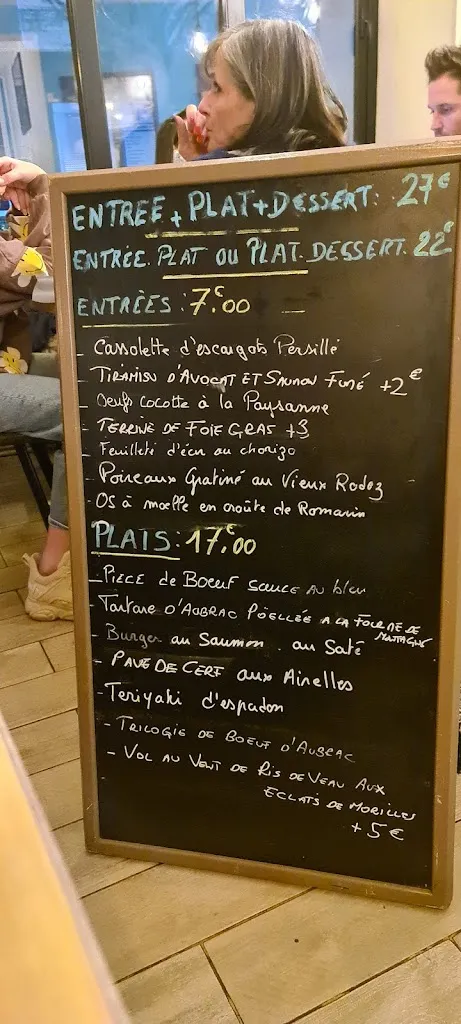 ENTREE + PLAT + DESSERT: 27€
ENTRÉE. PLAT OU PLAT. DESSERT. 22€
ENTRÉES : 7€.00
- Cassolette d'escargots Persillé
- TIRAMISU D'AVOCAT ET SAUMON FUMÉ +2€
- Oeufs cocotte à la Paysanne
- TERRINE DE FOIE GRAS +3
- Feuilleté d'écir au chorizo
- Poireaux Gratiné au Vieux Rodez
- OS à moelle en croûte de Romarin
PLAIS : 17€.00
- PIECE de BOEUF SAUCE AU bleu
- Tartare D'AUBRAC POÊLLÉE A LA FOURME DE
MONTAGNE
- Burger au Saumon. au Saté
- PAVE DE CERF aux Airelles
- Teriyaki d'espadon
- TRILOGIE DE BOEUF D'AUBRAC
- VOL AU VENT DE RIS DE VEAU AUX
ECLATS DE MORILLES
+5€